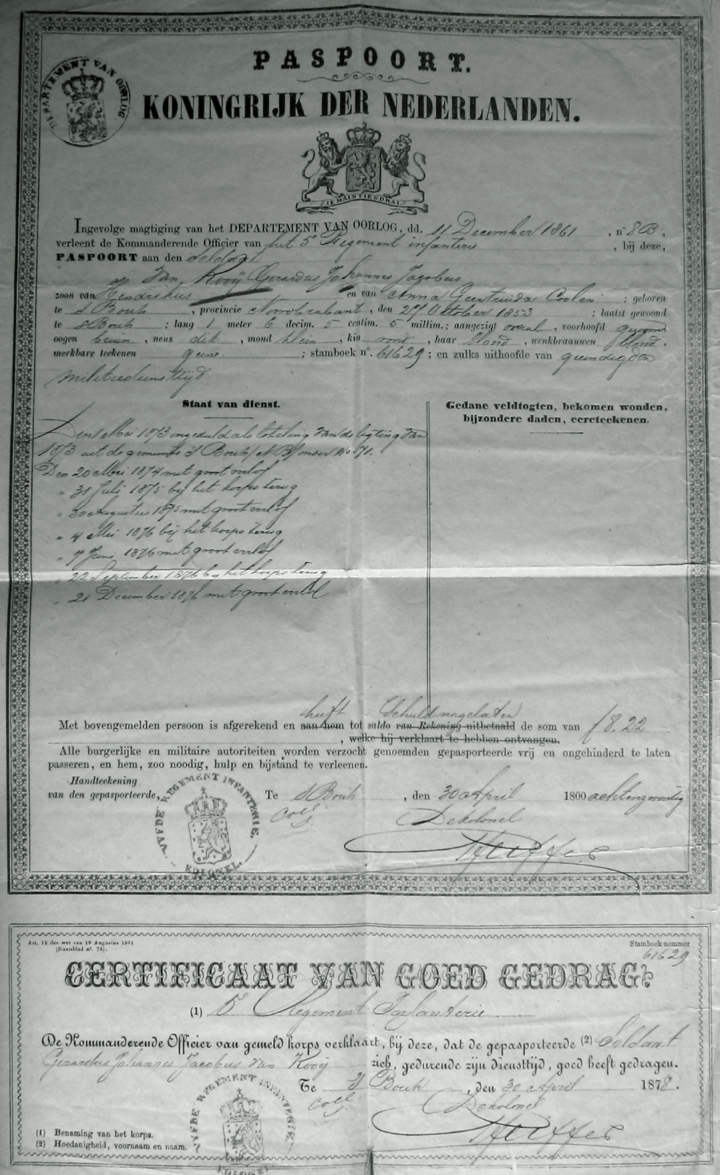 DEPARTEMENT VAN OORLOG
PASPOORT.
KONINGRIJK DER NEDERLANDEN.
JE MAINTIENDRAI
Ingevolge magtiging van het DEPARTEMENT VAN OORLOG, dd. 11 December 1861, n° 8B,
verleent de Kommanderende Officier van het 5 Regement infanterie, bij deze,
PASPOORT aan den soldaat
van Kooij Gerardus Johannes Jacobus
zoon van Hendrikus en van Anna Geertruida ; geboren
te s Bosch, provincie Noordbrabant, den 27 Oktober 1853 ; laatst gewoond
te s Bosch ; lang 1 meter 6 decim. 5 centim. 5 millim.; aangezigt ovaal, voorhoofd gewoon
oogen bruin, neus dik, mond klein, kin rond, haar blond, wenkbraauwen blond,
merkbare teekenen geene ; stamboek n°. 61629 ; en zulks uithoofde van geeindigden
militredienstijd
Staat van dienst.
Gedane veldtogten, bekomen wonden,
bijzondere daden, eereteekenen.
Den Mei 1873 ingedeeld als loteling van de ligting van
1873 uit de gemeente s Bosch No. 71.
Den 20 Mei 1874 met groot verlof
" 31 Juli 1875 bij het korps terug
" Augustus 1875 met groot verlof
" 4 Mei 1876 bij het korps terug
" 7 Juni 1876 met groot verlof
" 22 September 1876 bij het korps terug
" 21 December 1876 met groot verlof
heeft Schuld nagelaten
Met bovengemelden persoon is afgerekend en aan hem tot saldo van Rekening uitbetaald de som van f 8.22
, welke hij verklaart te hebben ontvangen.
Alle burgerlijke en militaire autoriteiten worden verzocht genoemden gepasporteerde vrij en ongehinderd te laten
passeren, en hem, zoo noodig, hulp en bijstand te verleenen.
Handteekening
van den gepasporteerde,
Te s Bosch, den 30 April 1800 achtenzeventig
De kolonel
VIJFDE REGIMENT INFANTERIE.
KOLONEL
Art. 12 der wet van 19 Augustus 1861
(Staatsblad n°. 72).
Stamboek-nommer
61629
CERTIFICAAT VAN GOED GEDRAG.
(1) 5 Regement Infanterie
De Kommanderende Officier van gemeld korps verklaart, bij deze, dat de gepasporteerde (2) Soldaat
Gerardus Johannes Jacobus van Kooij zich, gedurende zijn diensttijd, goed heeft gedragen.
Te s Bosch, den 30 April 1878.
De kolonel
VIJFDE REGIMENT INFANTERIE.
KOLONEL
(1) Benaming van het korps.
(2) Hoedanigheid, voornaam en naam.